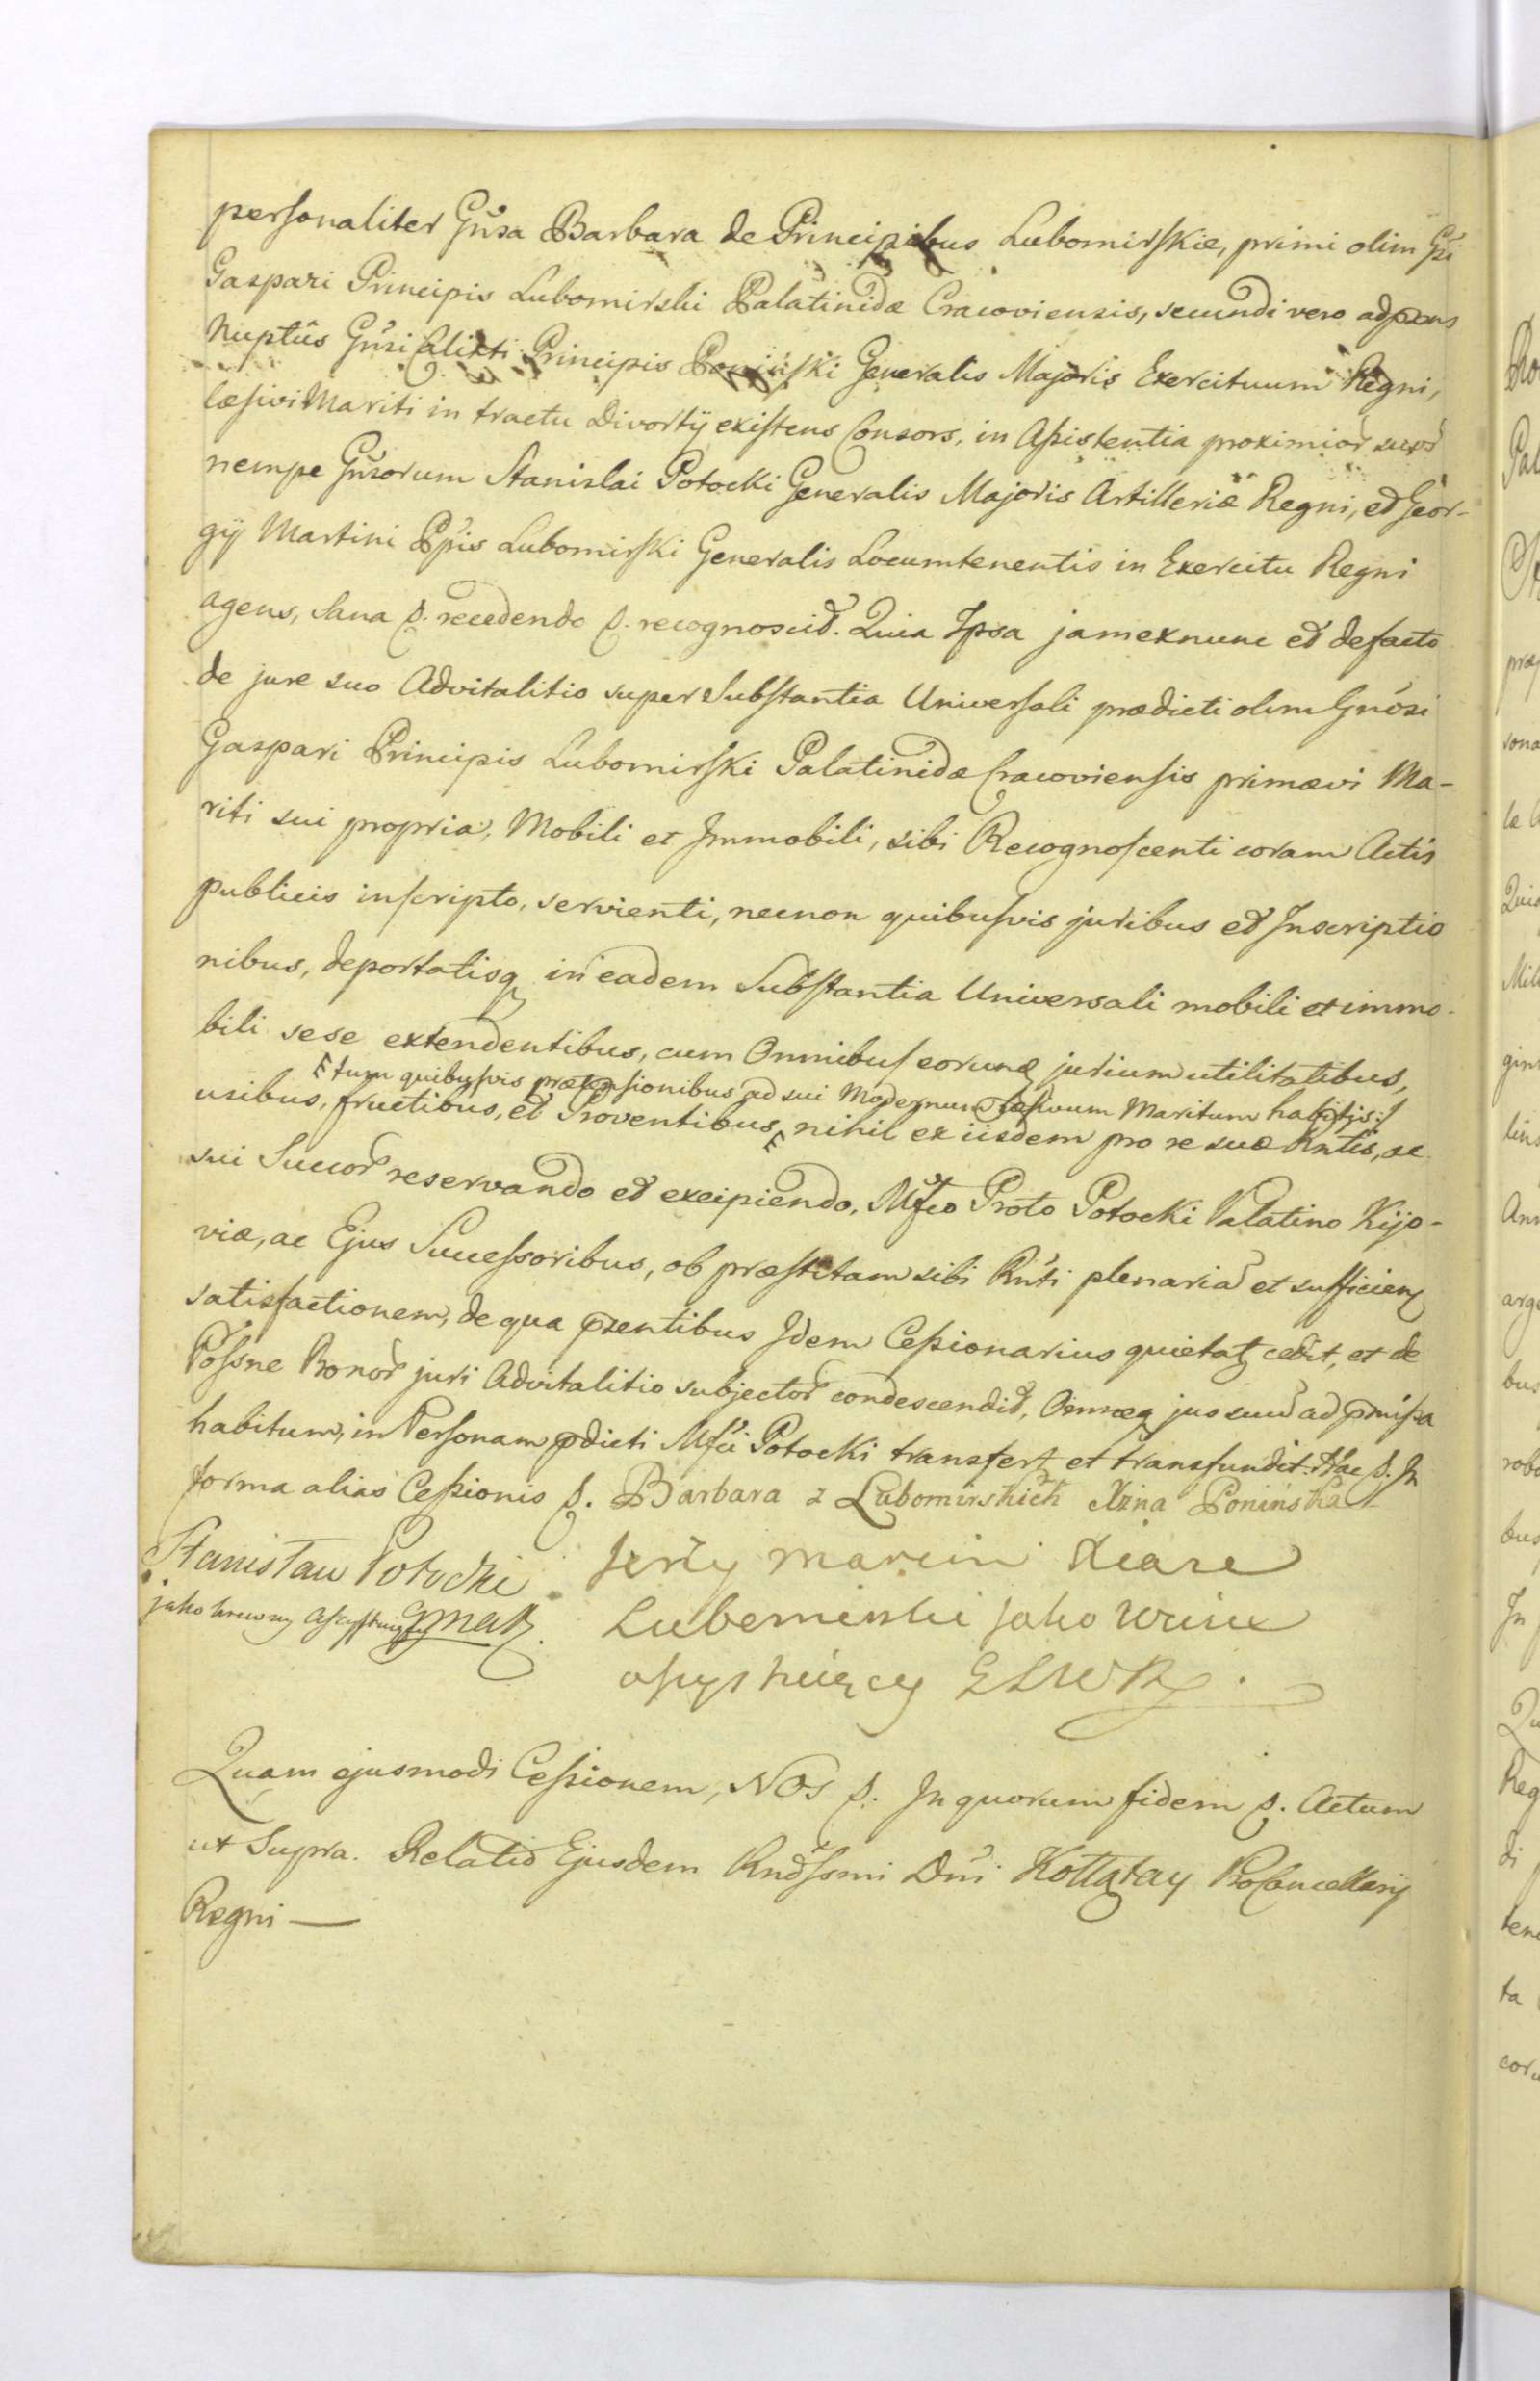 personaliter Gńsa Barbara de Principibus Lubomirskie, primi olim Gśi
Gaspari Principis Lubomirski Palatinidæ Cracoviensis, secundi vero adpræns
Nuptûs Gńsi Calixti Principis Poniński Generalis Majoris Exercituum Regni,
læsivi Mariti in tractu Divortÿ existens Consors, in Assistentia proximior suor
nempe Gńsorum Stanislai Potocki Generalis Majoris Artilleriæ Regni, et Geor-
gÿ Martini Ppis Lubomirski Generalis Locumtenentis in Exercitu Regni
agens, Sana p. recedendo p. recognoscit. Quia Ipsa jamexnunc et defacto
de jure suo Advitalitio super Substantia Universali prædicti olim Gnosi
Gaspari Principis Lubomirski Palatinidæ Cracoviensis primævi Ma-
riti sui propria, Mobili et Immobili, sibi Recognoscenti coram Actis
publicis inscripto, servienti, necnon quibusvis juribus et Inscriptio
nibus, deportatisq in eadem Substantia Universali mobili et immo-
bili sese extendentibus, cum Omnibus eorunq jurium utilitatibus,
tum quibusvis prætensionibus ad sui Modernum læsivum Maritum habitis:/
usibus, fructibus, et Proventibus, nihil ex iisdem pro se suæ Rntis, ac
sui Succor reservando et excipiendo, Mfco Proto Potocki Palatino Kijo-
viæ, ac Ejus Successoribus, ob præstitam sibi Rnti plenaria et sufficien
satisfactionem, de qua præsentibus Idem Cessionarius quietat cedit, et de
Possne Bonor juri Advitalitio subjector condescendit, Omneq jus suum ad pmissa
habitum, in Personam pdicti Mfci Potocki transfert et transfundit. Hac p. In
forma alias Cessionis p. Barbara z Lubomirskich Xżna Ponińska
Stanisław Potocki
jako krewny Assystuiący GMAK.
Jerży marcin Xiaze
Lubomirski jako
assystuięcy GLWK.
Quam ejusmodi Cessionem, NOS p. In quorum fidem p. Actum
ut Supra. Relatio Ejusdem Rndssmi Dni Kołłątay ProCancellarij
Regni —